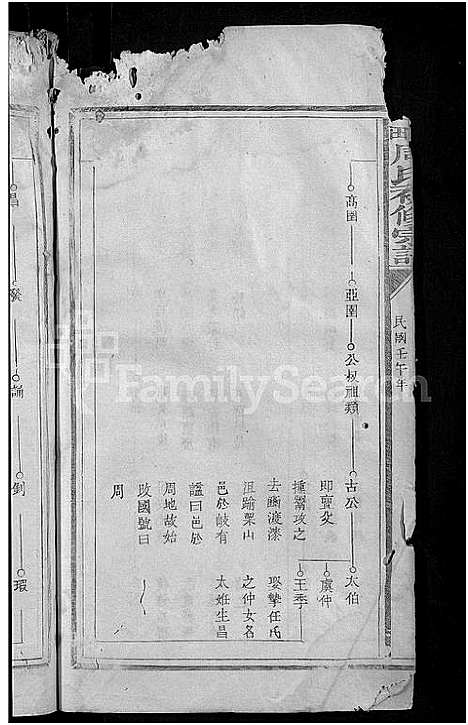 周氏初修宗譜
民國壬午年
高圉
亞圉
公叔祖類
古公
即亶父
獯鬻攻之
去豳渡漆
沮踰梁山
邑於岐有
諡曰邑於
周地故始
改國號曰
周
太伯
虞仲
王季
娶摯任氏
之仲女名
太姙生昌
昌
發
誦
釗
瑕
FamilySearch